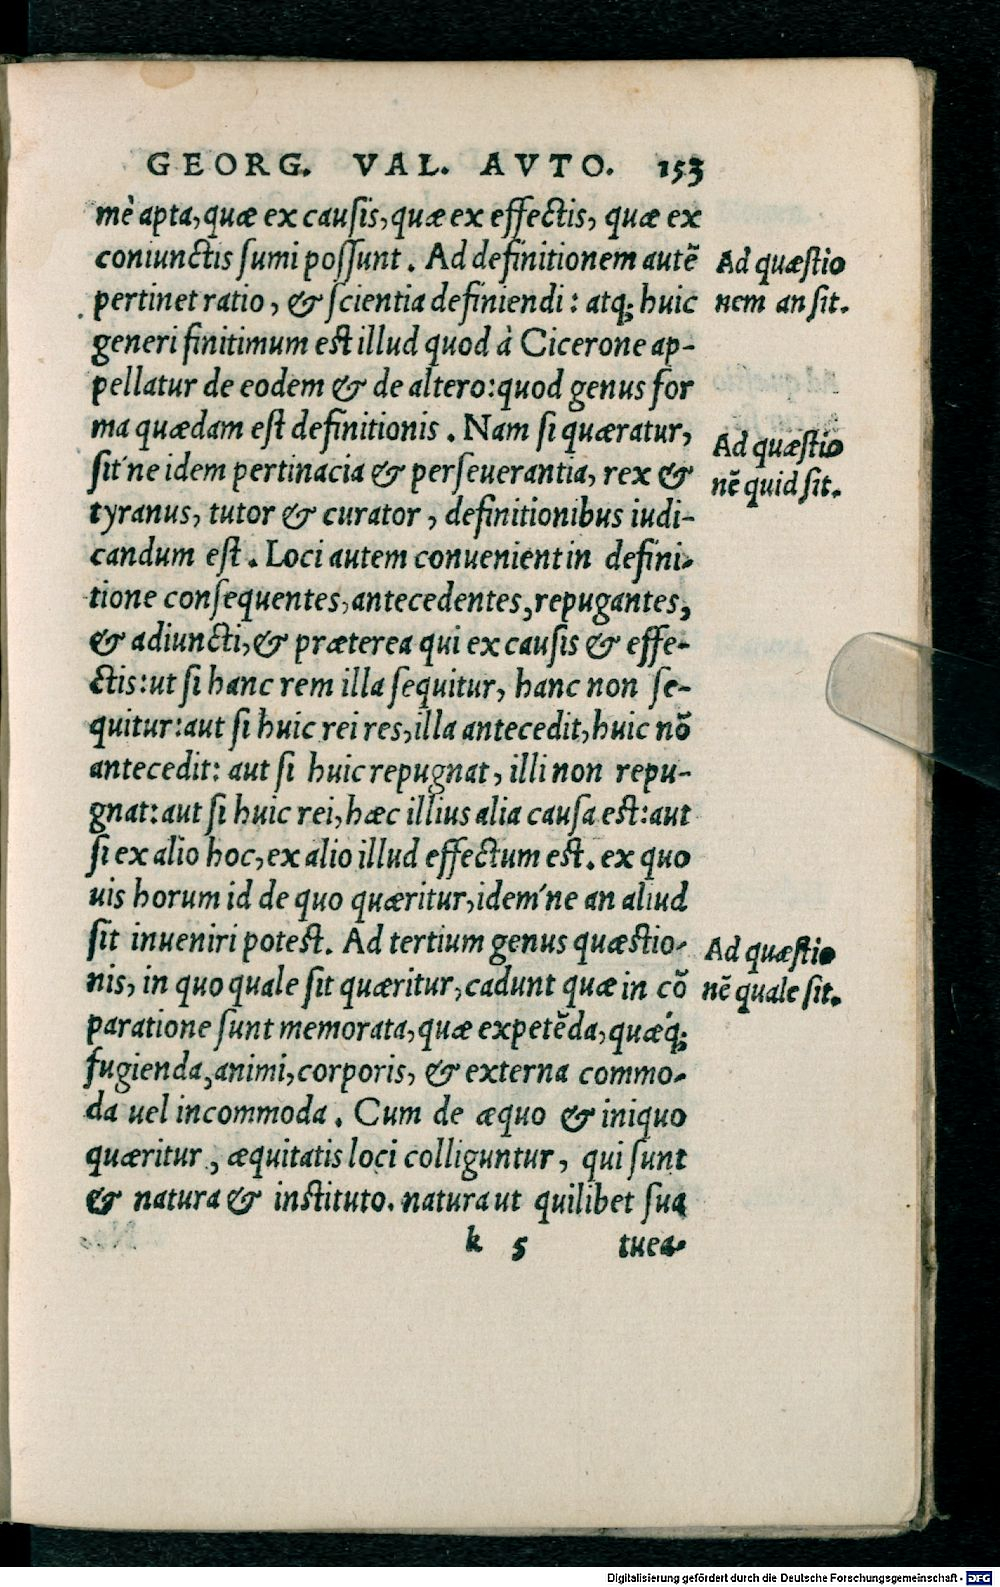 GEORG. VAL. AVTO. 153
mè apta, quæ ex causis, quæ ex effectis, quæ ex
coniunctis sumi possunt. Ad definitionem autẽ
pertinet ratio, & scientia definiendi: atq; huic
generi finitimum est illud quod à Cicerone ap-
pellatur de eodem & de altero: quod genus for
ma quædam est definitionis. Nam si quæratur,
sit´ne idem pertinacia & perseuerantia, rex &
tyranus, tutor & curator, definitionibus iudi-
candum est. Loci autem conuenient in defini-
tione consequentes, antecedentes, repugantes,
& adiuncti, & præterea qui ex causis & effe-
ctis: ut si hanc rem illa sequitur, hanc non se-
quitur: aut si huic rei res, illa antecedit, huic nõ
antecedit: aut si huic repugnat, illi non repu-
gnat: aut si huic rei, hæc illius alia causa est: aut
si ex alio hoc, ex alio illud effectum est. ex quo
uis horum id de quo quæritur, idem´ne an aliud
sit inueniri potest. Ad tertium genus quæstio-
nis, in quo quale sit quæritur, cadunt quæ in cõ
paratione sunt memorata, quæ expetẽda, quæq́;
fugienda, animi, corporis, & externa commo-
da uel incommoda. Cum de æquo & iniquo
quæritur, æquitatis loci colliguntur, qui sunt
& natura & instituto. natura ut quilibet sua
k 5 tuea-
Ad quæstio
nem an sit.
Ad quæstio
nẽ quid sit.
Ad quæstio
nẽ quale sit.
Digitalisierung gefördert durch die Deutsche Forschungsgemeinschaft - DFG